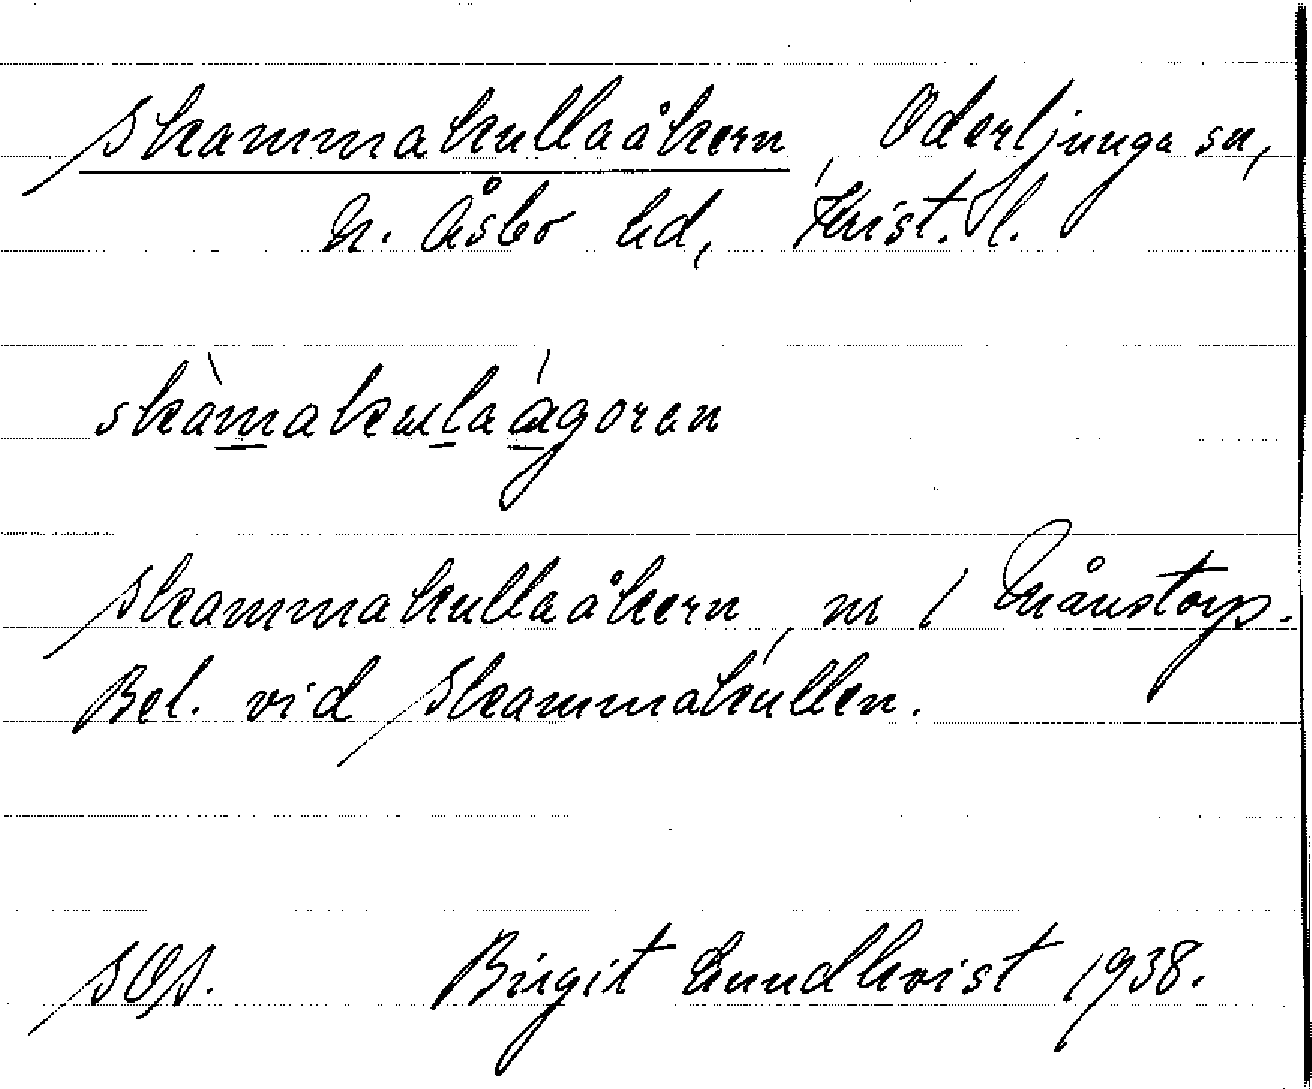 Skammakullaåkern, Oderljunga sn,
N. Åsbo hd, Krist. l.
skàmakulaágoren
Skammakullaåkern, nr 1 Månstorp.
Bel. vid Skammakullen.
Birgit Lundkvist 1938.